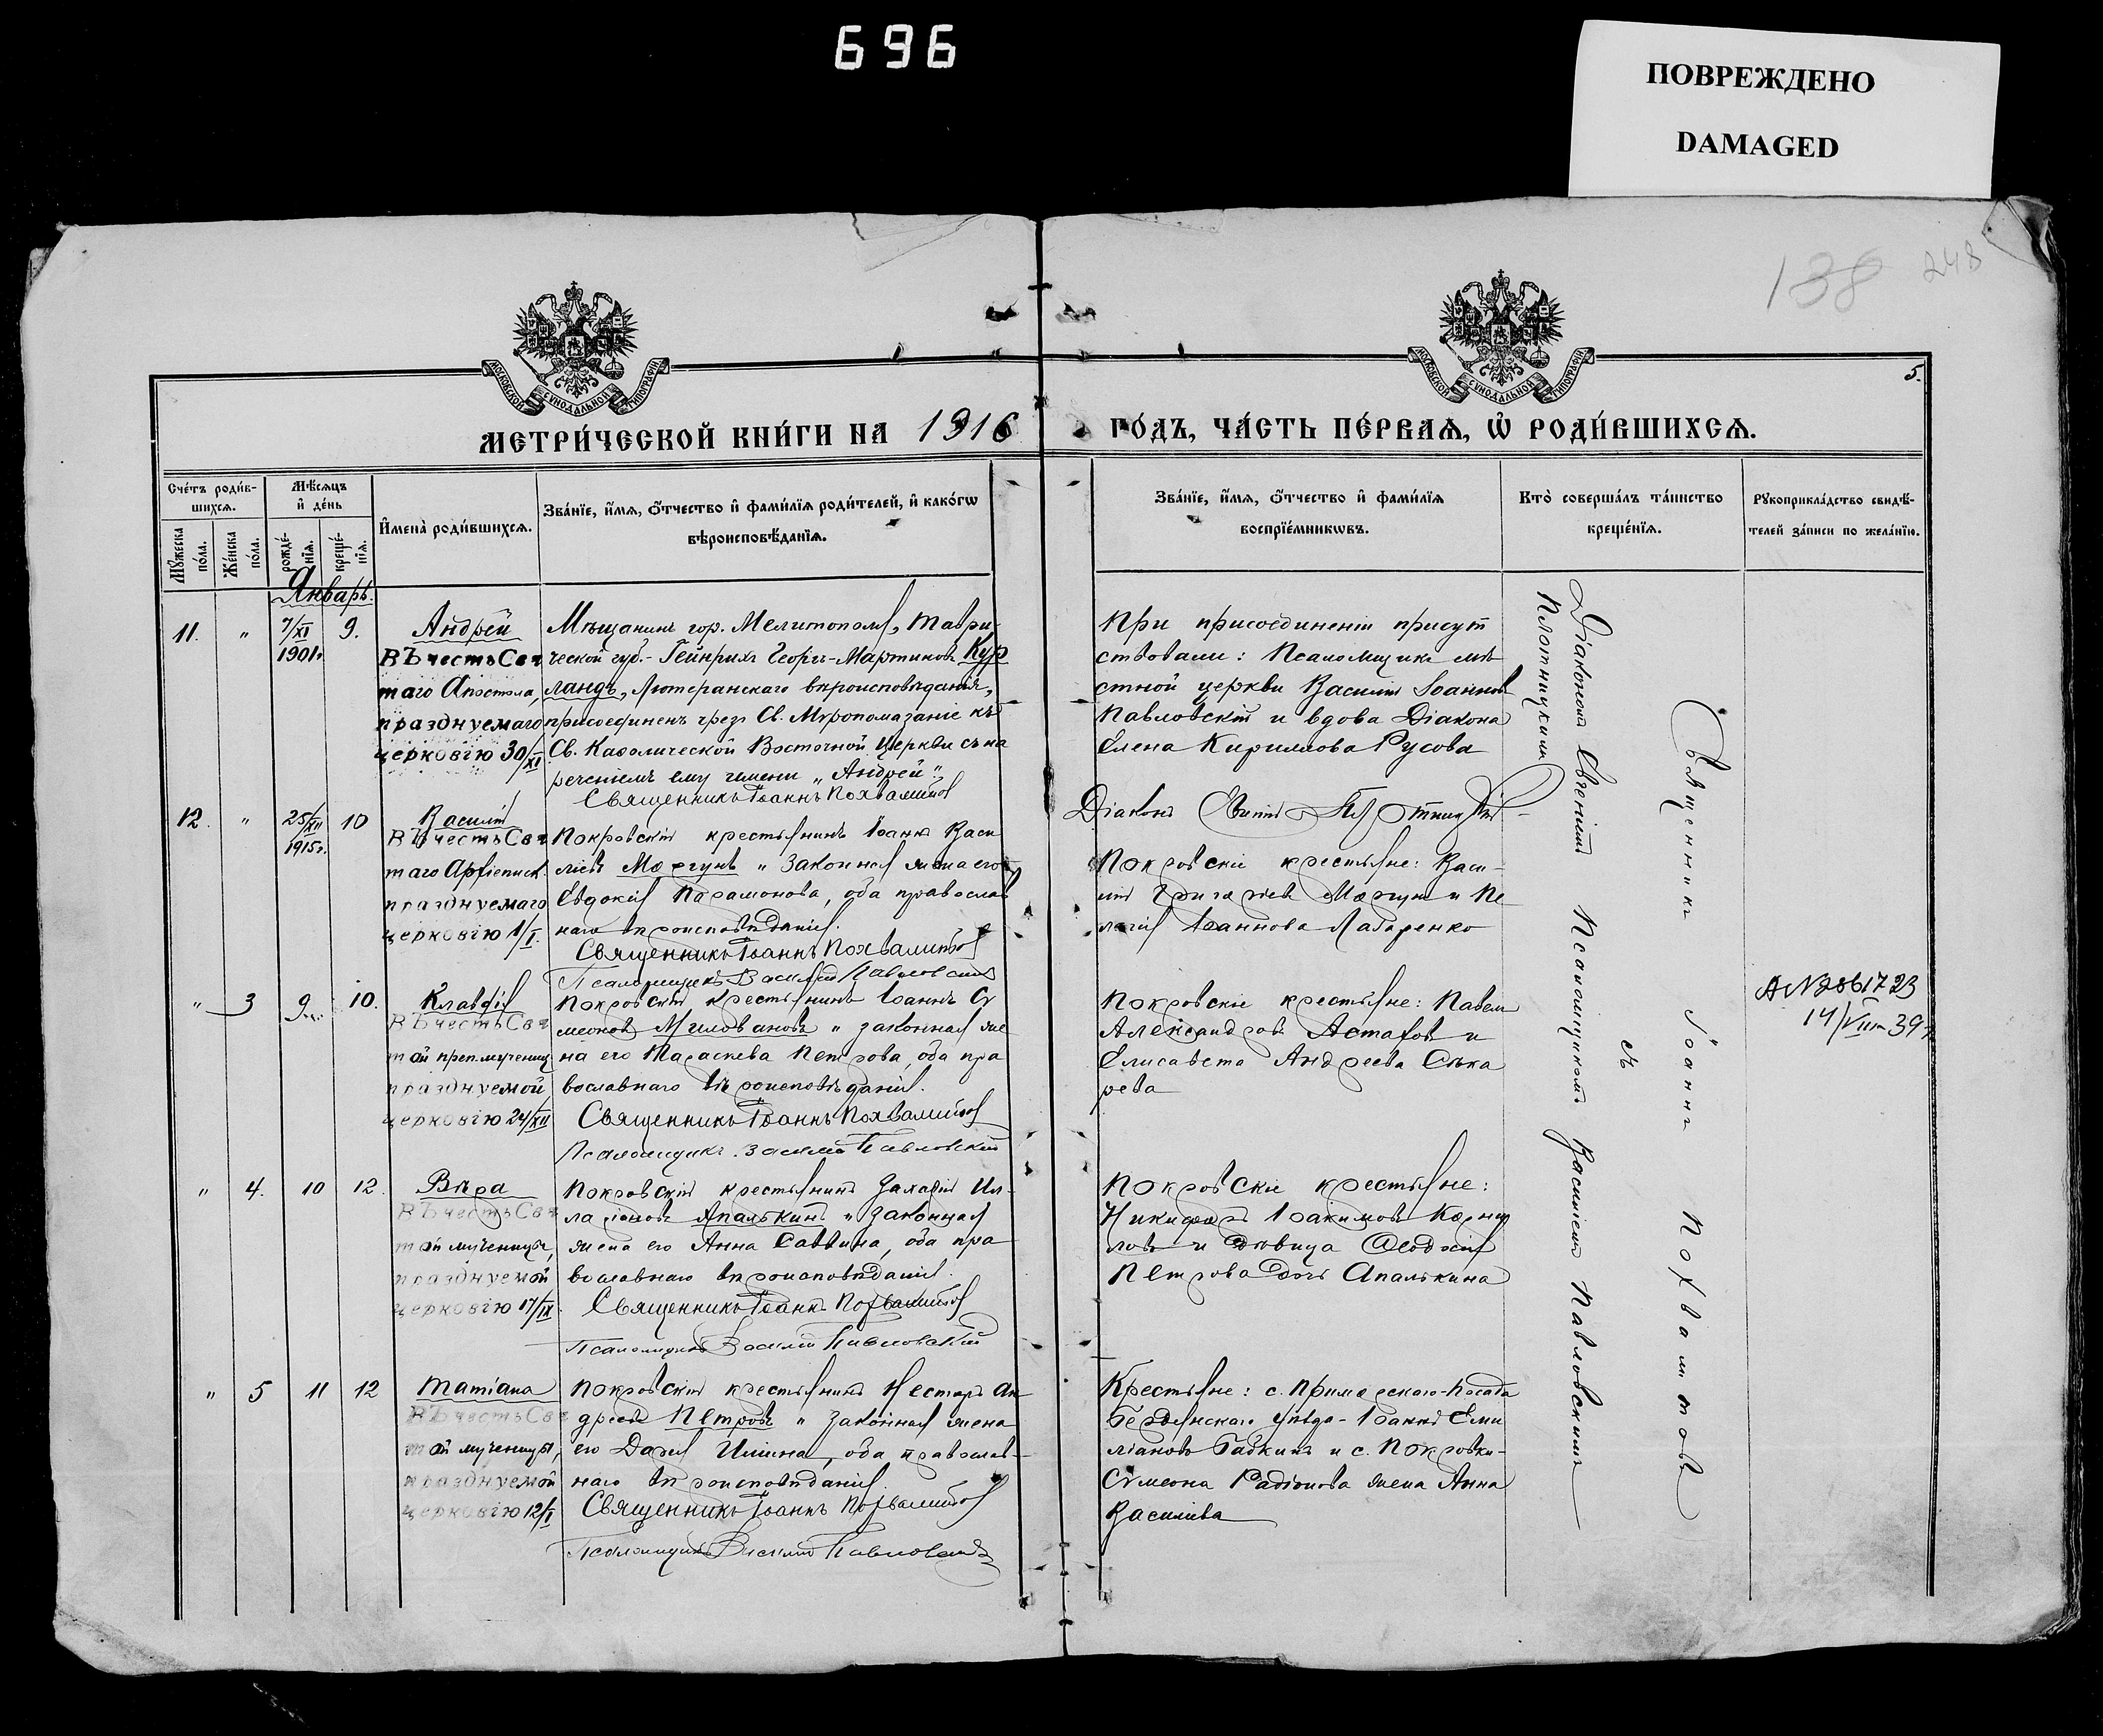 696
ПОВРЕЖДЕНО
DAMAGED
138
248
МОСКОВСКОЙ СѴНОДАЛЬНОЙ ТИПОГРАФІИ
МОСКОВСКОЙ СѴНОДАЛЬНОЙ ТИПОГРАФІИ
5.
МЕТРИ́ЧЕСКОЙ КНИ́ГИ НА 1916
ГО́ДЪ, ЧА́СТЬ ПЕ́РВАѦ, Ѡ҆ РОДИ́ВШИХСѦ.
Сче́тъ роди́в-
шихсѧ.
Мꙋ́жеска
по́ла.
Же́нска
по́ла.
Мѣ́сѧцъ
и҆ де́нь
рожде́-
нїѧ.
креще́-
нїѧ.
И҆мена̀ роди́вшихсѧ.
Зва́нїе, и҆́мѧ, ѻ҆́тчество и҆ фами́лїѧ роди́телей, и҆ како́гѡ
вѣроисповѣ́данїѧ.
Зва́нїе, и҆́мѧ, ѻ҆́тчество и҆ фами́лїѧ
воспрїе́мникѡвъ.
Кто̀ соверша́лъ та́инство
креще́нїѧ.
Рꙋкоприкла́дство свидѣ́-
телей за́писи по жела́нїю.
Январь.
11. " 7/XI 1901г 9.
Андрей
ВЪ честь Свя
таго Апостола,
празднуемаго
церковію 30/XI
Мѣщанинъ гор. Мелитополя, Таври-
ческой губ.- Гейнрихъ Георгъ-Мартиновъ Кур
ландъ, Лютеранскаго вѣроисповѣданія,
присоединенъ чрезъ Св. Мѵропомазаніе къ
Св. Каѳолической Восточной Церкви съ на
реченіемъ ему имени „Андрей".
Священникъ Іоаннъ Похвалитовъ
При присоединеніи присут
ствовали: Псаломщикъ мѣ
стной церкви Василій Іоанновъ
Павловскій и вдова Діакона
Елена Кириллова Русова
Діаконъ Евгеній Плотницкій
12. " 25/XII 1915г. 10
Василій
ВЪ честь Свя
таго Архіеписк.
празднуемаго
церковію 1/I.
Покровскій крестьянинъ Іоаннъ Васи
ліевъ Моргунъ и законная жена его
Евдокія Парамонова, оба православ
наго вѣроисповѣданія.
Священникъ Іоаннъ Похвалитовъ
Псаломщикъ Василій Павловскій
Покровскіе крестьяне: Васи-
лій Григоріевъ Моргунъ и Пе
лагія Іоаннова Лазаренко
" 3 9 10.
Клавдія
ВЪ честь Свя
той преп.мученицы
празднуемой
церковію 24/XII
Покровскій крестьянинъ Іоаннъ Сѵ
меоновъ Миловановъ и законная же
на его Параскева Петрова, оба пра
вославнаго вѣроисповѣданія.
Священникъ Іоаннъ Похвалитовъ
Псаломщикъ Василій Павловскій
Покровскіе крестьяне: Павелъ
Александровъ Астафовъ и
Елисавета Андреева Сѣка
рева
" 4. 10 12.
Вѣра
ВЪ честь Свя
той мученицы,
празднуемой
церковію 17/IX.
Покровскій крестьянинъ Захарій Ил-
ларіоновъ Апалькинъ и законная
жена его Анна Саввина, оба пра
вославнаго вѣроисповѣданія.
Священникъ Іоаннъ Похвалитовъ
Псаломщикъ Василій Павловскій
Покровскіе крестьяне:
Никифоръ Іоакимовъ Корни
ловъ и дѣвица Ѳеодосія
Петрова дочь Апалькина
" 5 11 12
Татіана
ВЪ честь Свя
той мученицы,
празднуемой
церковію 12/I
Покровскій крестьянинъ Несторъ Ан
дреевъ Петровъ и законная жена
его Дарія Ильина, оба православ-
наго вѣроисповѣданія.
Священникъ Іоаннъ Похвалитовъ
Псаломщикъ Василій Павловскій
Крестьяне: с. Приморскаго-Посада
Бердянскаго уѣзда- Іоаннъ Еми
ліановъ Бабкинъ и с. Покровки-
Сѵмеона Радіонова жена Анна
Василіева
Священникъ Іоаннъ Похвалитовъ
съ
Діакономъ Евгеніемъ Псаломщикомъ Василіемъ Павловскимъ
Плотницкимъ
14/VIII 39г